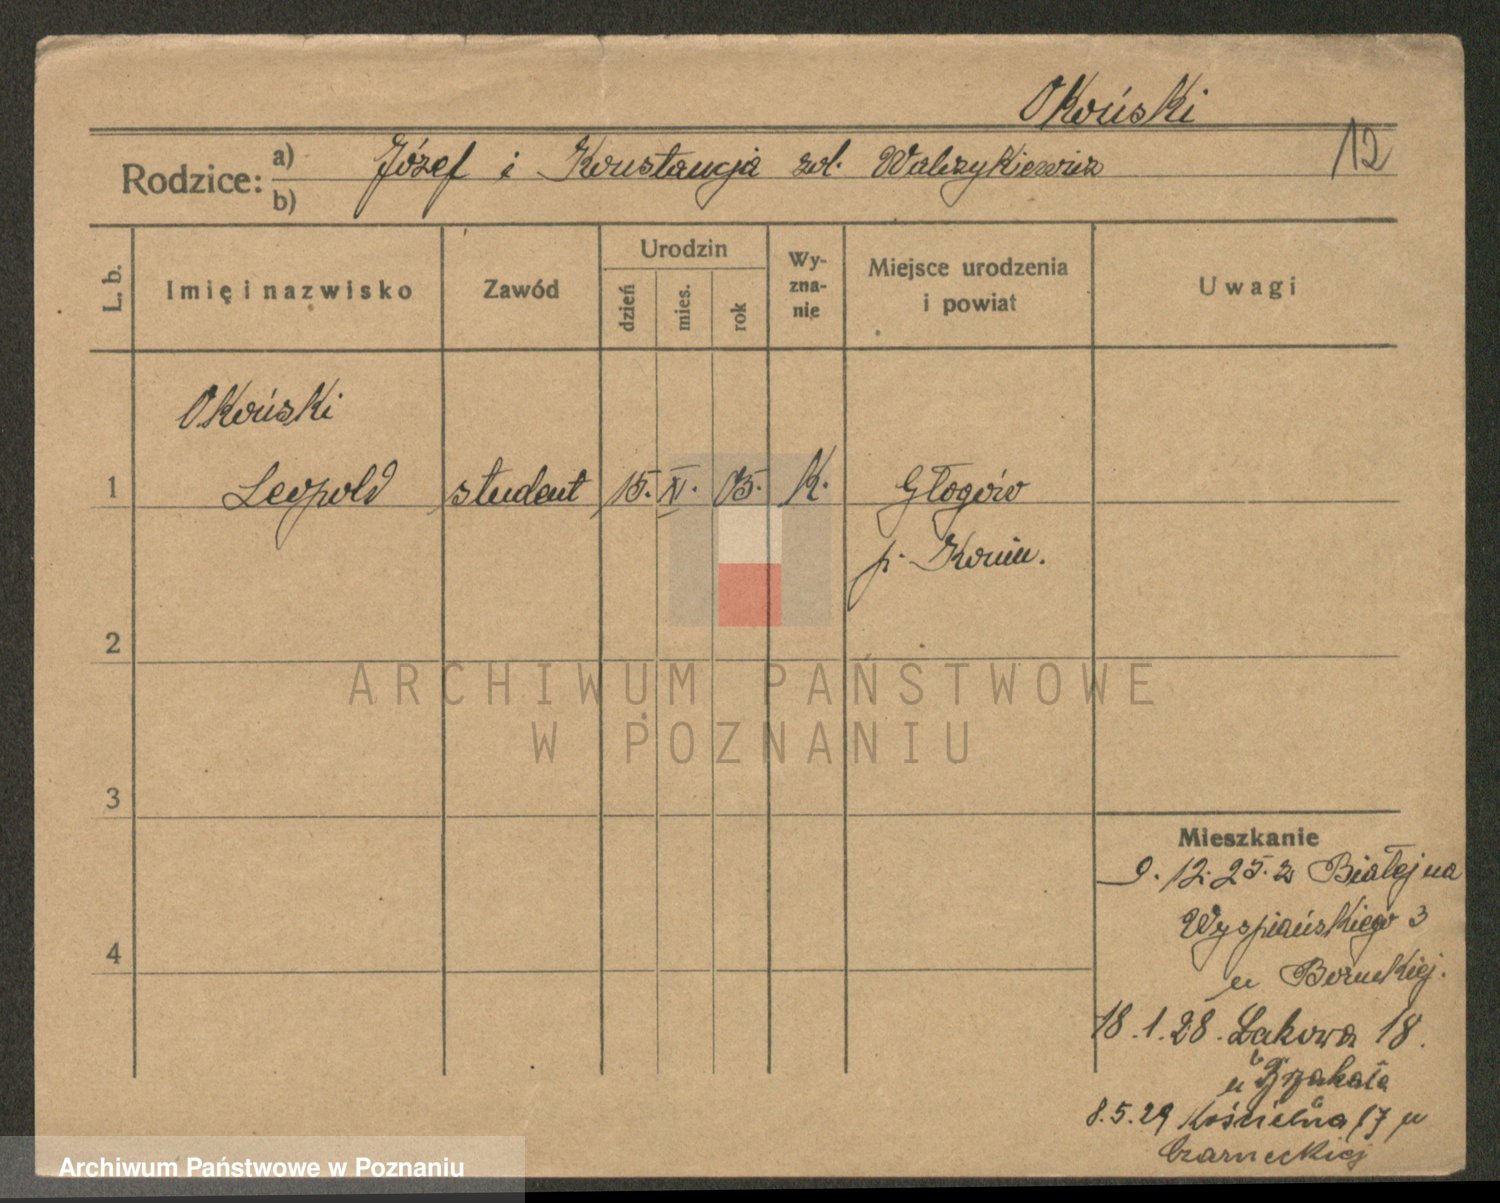 Okoński
12
Rodzice: a) b) Józef i Konstancja zd. Walczykiewicz
L. b.
Imię i nazwisko
Zawód
Urodzin
dzień
mies.
rok
Wy-
zna-
nie
Miejsce urodzenia
i powiat
Uwagi
Okoński
1 Leopold student 15. XI. 05. K. Głogów
p. Konin.
2
ARCHIWUM PAŃSTWOWE
W POZNANIU
3
Mieszkanie
9.12.25. z Białej na
Wyspiańskiego 3
4
u Boruckiej.
18.1.28. Łąkowa 18.
u Brzakała
8.5.29 Kościelna 17 u
Czarneckiej
Archiwum Państwowe w Poznaniu